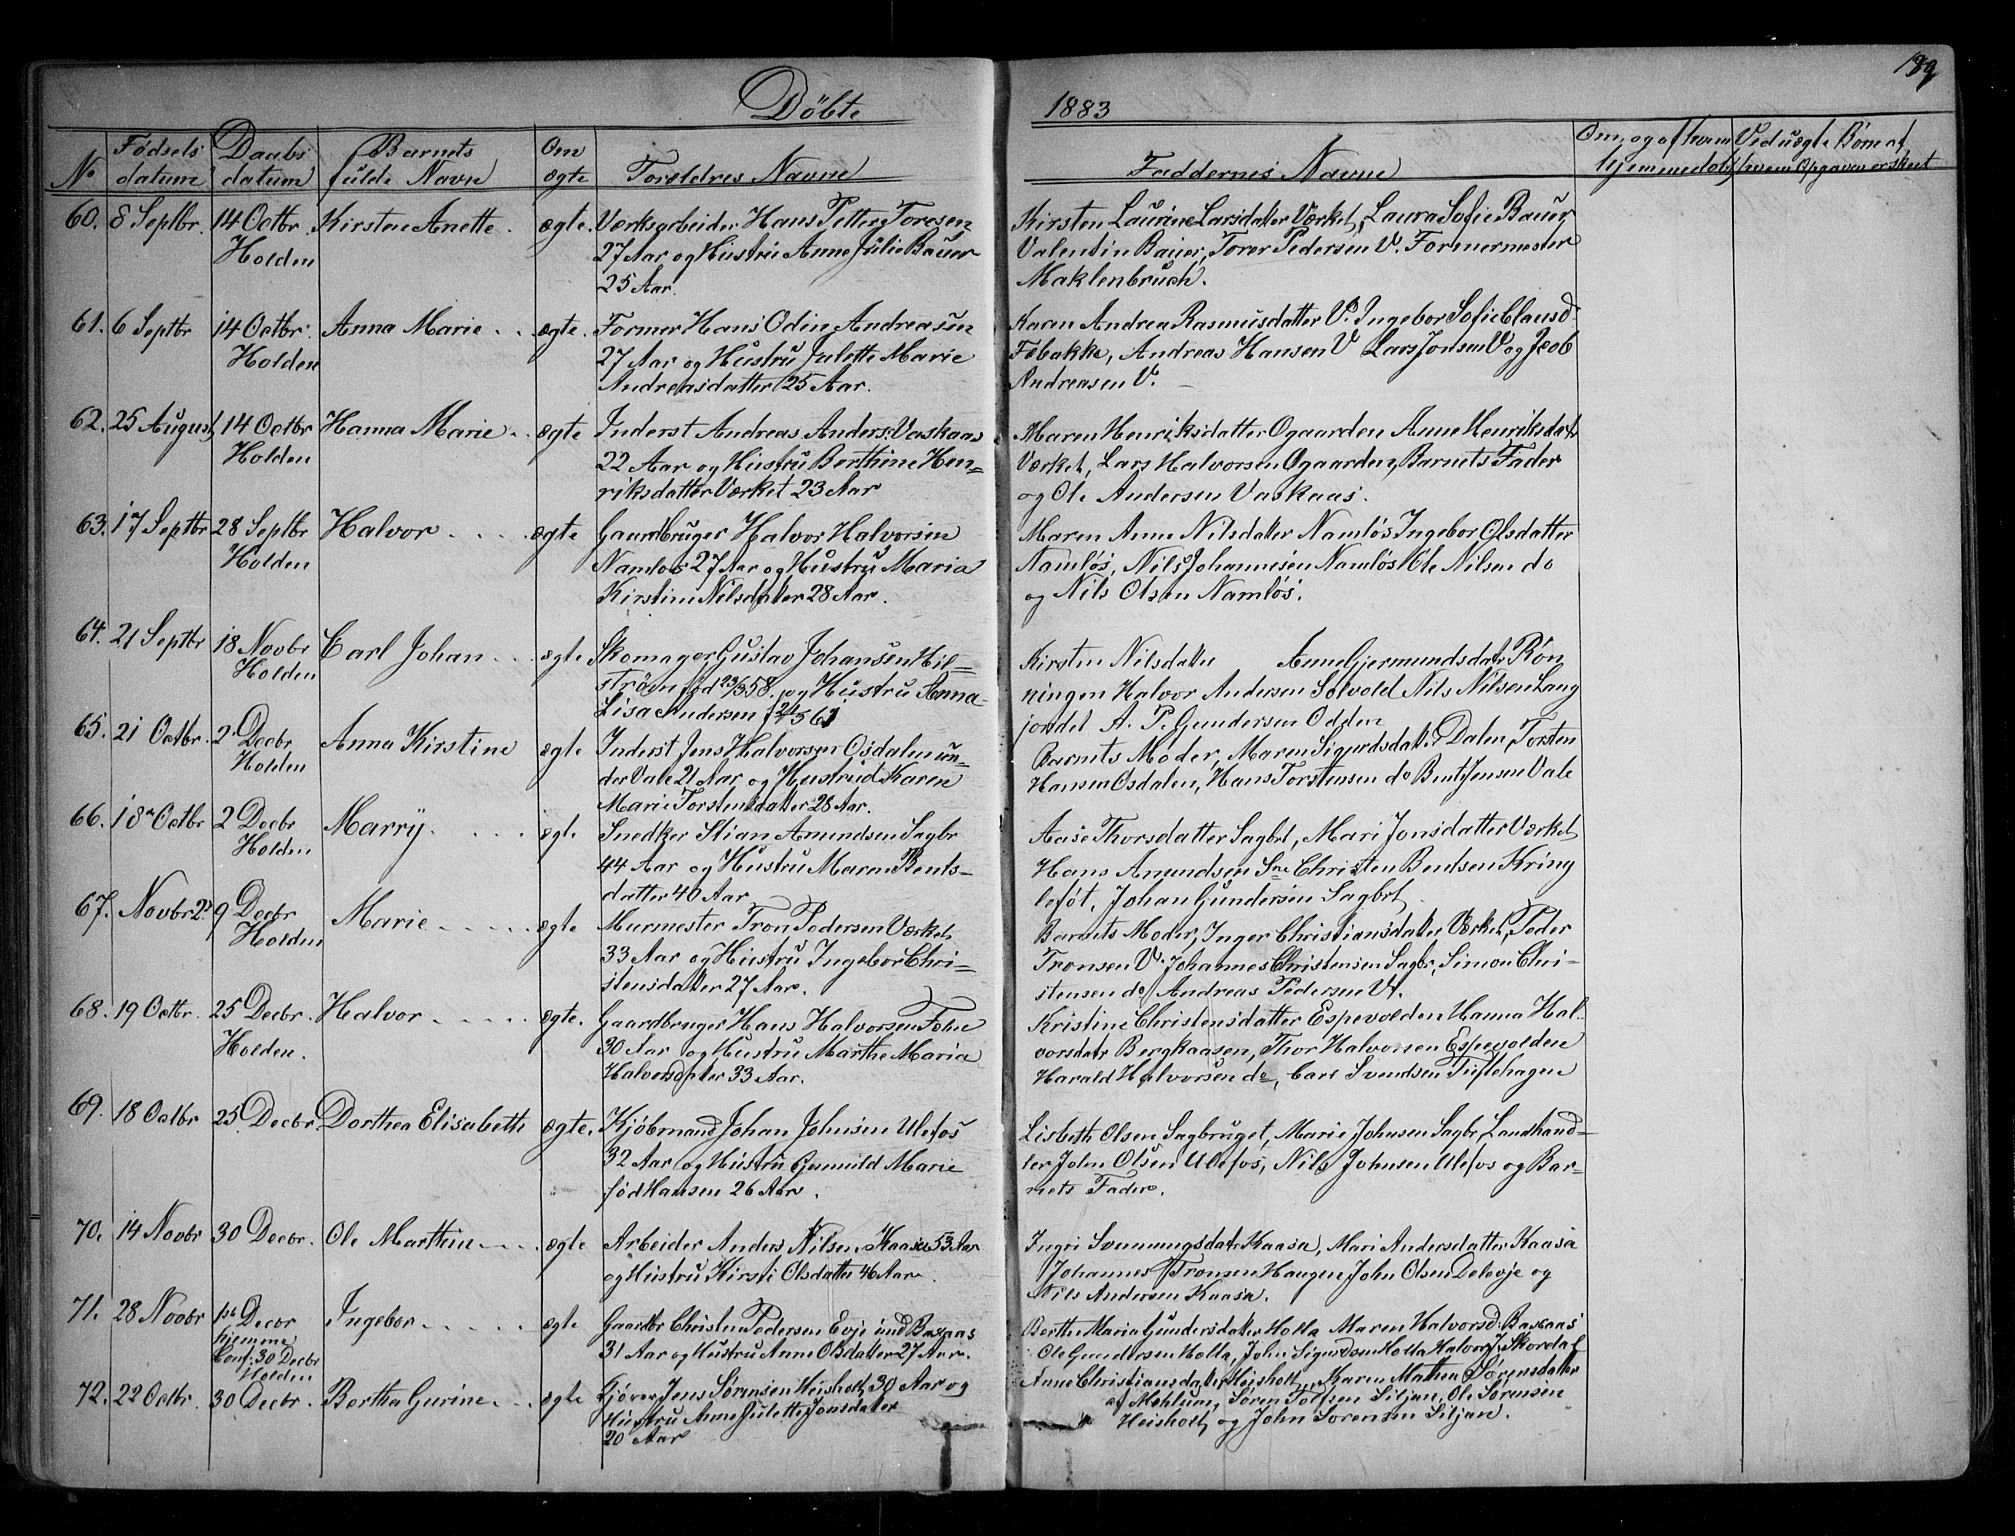 Döbte
1883
No
Fødsels datum
Daabs datum
Barnets fulde Navn
Om ægte
Forældres Navne
Faddernes Navne
Om, og af hvem hjemmedøbt
Ved uægte Børn af hvem Opgaven er skeet
60. 8 Septbr. 14 Octbr. Kirsten Anette. ægte. Værksarbeider Hans Petter Toresen
Holden 27 Aar og Hustru Anne Julie Bauer
25 Aar.
Kirsten Laurine Larsdatter Værket, Laura Sofie Bauer
Valentin Bauer, Torer Pedersen V. Formermester
Maklenbruch.
61. 6 Septbr 14 Octbr. Anna Marie ægte. Former Hans Odin Andreasen
Holden 27 Aar og Hustru Julette Marie
Andreasdatter 25 Aar.
Karen Andrea Rasmusdatter V. Ingebor Sofie Clausd
Fæbakke, Andreas Hansen V Lars Jonsen V og Jacob
Andreasen V.
62. 25 August 14 Octbr Hanna Marie ægte Inderst Andreas Anders. Vaskaas
Holden 22 Aar og Hustru Berthine Hen=
riksdatter Værket 23 Aar
Maren Henriksdatter Ogaarden Anne Henriksdatr
Værket, Lars Halvorsen Ogaarden, Barnets Fader
og Ole Andersen Vaskaas.
63. 17 Septbr 28 Septbr Halvor ægte Gaardbruger Halvor Halvorsen
Holden Namløs 27 Aar og Hustru Maria
Kirstine Nilsdatter 28 Aar.
Maren Anne Nilsdatter Namløs Ingebor Olsdatter
Namløs, Nils Johannesen Namløs Ole Nilsen do
og Nils Olsen Namløs.
64. 21 Septbr 18 Novbr Carl Johan ægte Skomager Gustav Johansen Hil=
Holden strøm fød 23/3 58. og Hustru Anna
Lisa Andersen f 24/5 61
Kirsten Nilsdatter Anne Gjermundsdatr Røn
ningen Halvor Andersen Solvold Nils Nilsen Lang
jordet A. P. Gundersen Odden
65. 21 Octbr. 2 Decbr Anna Kirstine ægte Inderst Jens Halvorsen Osdalen un=
Holden der Vale 21 Aar og Hustru d Karen
Marie Torstensdatter 28 Aar.
Barnets Moder, Maren Sigurdsdatter Dalen, Torsten
Hansen Osdalen, Hans Torstensen do Bent Jensen Vale
66. 18 Octbr 2 Decbr Marry ægte Snedker Stian Amundsen Sagbr
Holden 44 Aar og Hustru Maren Bents=
datter 40 Aar
Aase Thorsdatter Sagbrt, Mari Jonsdatter Værket
Hans Amundsen Christen Bentsen Kring
lefot, Johan Gundersen Sagbrt
67. Novbr 2 9 Decbr Marie ægte Murmester Tron Pedersen Værket
Holden 33 Aar og Hustru Ingebor Chri=
stensdatter 27 Aar.
Barnets Moder, Inger Christiansdatter Værket, Peder
Tronsen V. Johannes Christensen Sagbr, Simon Chri=
stensen do Andreas Pedersen V.
68. 19 Octbr. 25 Decbr. Halvor ægte. Gaardbruger Hans Halvorsen Fæhn
Holden. 30 Aar og Hustru Marthe Maria
Halvorsdatter 33 Aar.
Kristine Christensdatter Espevolden Hanna Hal=
vorsdatr Bergkaasen, Thor Halvorsen Espevolden
Harald Halvorsen do, Carl Svendsen Tuftehagen
69. 18 Octbr 25 Decbr Dorthea Elisabeth ægte. Kjöbmand Johan Johnsen Ulefos
32 Aar og Hustru Gunuld Marie
född Hansen 26 Aar.
Lisbeth Olsen Sagbruget, Marie Johnsen Sagbr, Landhand=
ler John Olsen Ulefos, Nils Johnsen Ulefos og Bar=
nets Fader.
70. 14 Novbr 30 Decbr. Ole Marthin ægte Arbeider Anders Nilsen Kaasa 53 Aar
og Hustru Kirsti Olsdatter 46 Aar.
Ingri Svenningsdatr Kaasa, Mari Andersdatter Kaasa
Johannes Tronsen Haugen, John Olsen Deleoje og
Nils Andersen Kaasa.
71. 28 Novbr 1ste Decbr Ingebor ægte Gaardbr Christen Pedersen Evje und Baskaas
hjemme 31 Aar og Hustru Anne Olsdatter 27 Aar.
Conf: 30 Decbr
Holden
Berthe Maria Gundersdatter Holla Maren Halvorsd. Baskaas
Ole Gundersen Holla, John Sigurdsen Holla Halvor J. Skordal
72. 22 Octbr. 30 Decbr. Bertha Gurine ægte Jens Sørensen Heisholt 30 Aar og
Hustru Anne Julette Jonsdatter
20 Aar
Anne Christiansdatter Heisholt, Karen Mathea Sørensdatter
af Mehlum, Søren Tolfsen Siljan, Ole Sørensen
Heisholt, og John Sorensen Siljan.